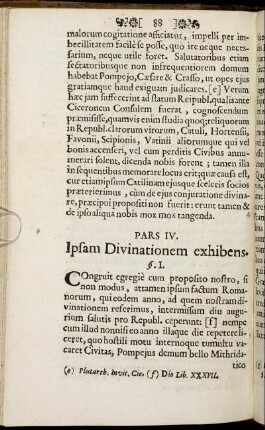 [ 88 ]
malorum cogitatione afficiatur, impelli per im-
becillitatem facilè se posse, quo ire neque neces-
sarium, neque utile foret. Salutatoribus etiam
sectatoribusque non infrequentiorem domum
habebat Pompejo, Cæsare & Crasso, ut opes ejus
gratiamque haud exiguam judicares. [e] Verum
hæc jam suffecerint ad statum Reipubl. qualis ante
Ciceronem Consulem fuerat, cognoscendum
præmisisse, quamvis enim studia quoq; reliquorum
in Republ. clarorum virorum, Catuli, Hortensii,
Favonii, Scipionis, Vatinii aliorumque qui vel
bonos accenseri, vel cum perditis Civibus annu-
merari solent, dicenda nobis forent; tamen illa
in sequentibus memorare locus erit; quæ causa est,
cur etiam ipsum Catilinam ejusque sceleris socios
præterierimus, cùm de ejus conjuratione divina-
re, præcipui propositi non fuerit: erunt tamen &
de ipso aliqua nobis mox mox tangenda.
PARS IV.
Ipsam Divinationem exhibens.
§. I.
Congruit egregiè cum proposito nostro, si
non modus, attamen ipsum factum Roma-
norum, qui eodem anno, ad quem nostram di-
vinationem referimus, intermissum diu augu-
rium salutis pro Republ. ceperunt: [f] nempe
cum illud nonnisi eo anno illaque die repetere li-
ceret, quo hostili motu internoque tumultu va-
caret Civitas, Pompejus demum bello Mithrida-
tico
(e) Plutarch. in vit. Cic. (f) Dio Lib. XXXVII.